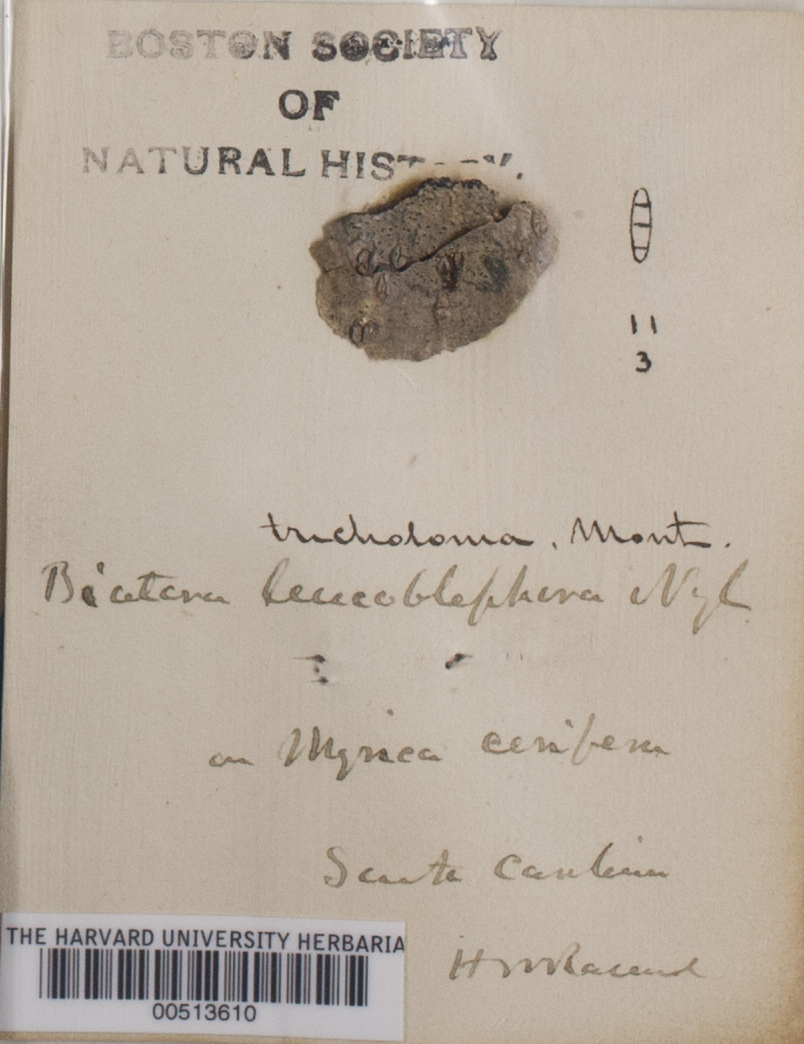 BOSTON SOCIETY
OF
NATURAL HISTORY.
11
3
tricholoma, Mont.
Biatora leucoblephara Nyl
on Myrica cerifera
South Carolina
HWRavenel
THE HARVARD UNIVERSITY HERBARIA
00513610